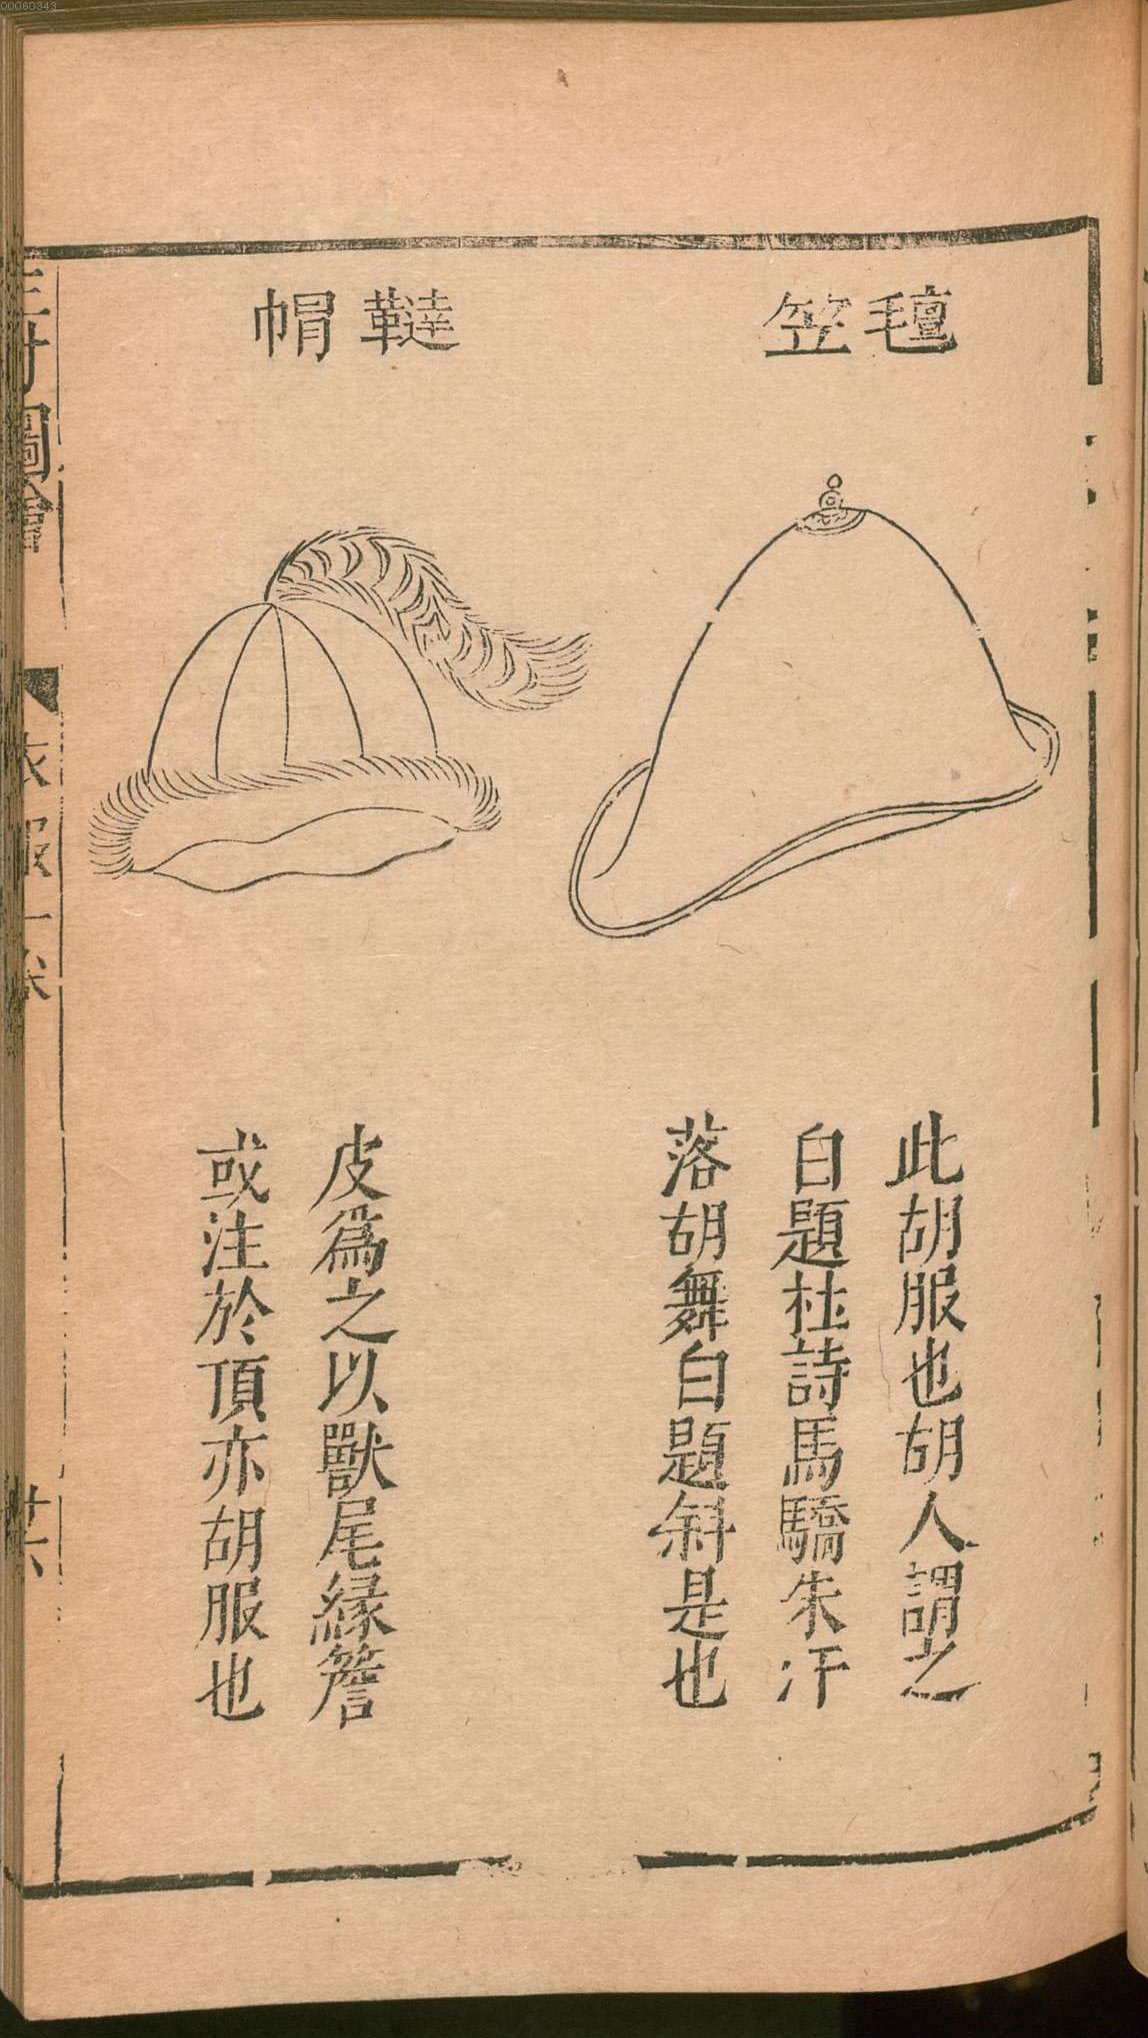 00060343
氊笠
此胡服也胡人謂之
白題杜詩馬驕朱汗
落胡舞白題斜是也
韃帽
皮爲之以獸尾緣簷
或注於頂亦胡服也
三才圖會
衣服一卷
廿六